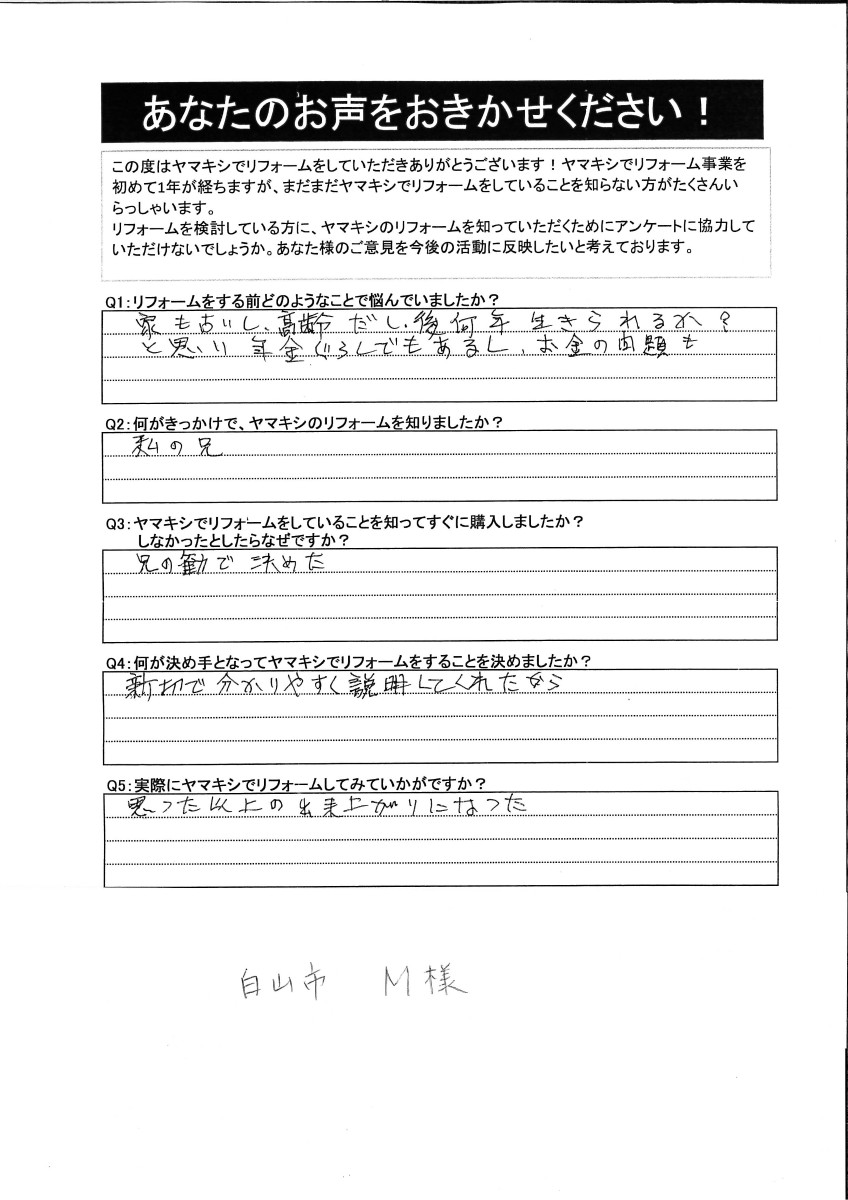 あなたのお声をおきかせください！
この度はヤマキシでリフォームをしていただきありがとうございます！ヤマキシでリフォーム事業を
初めて1年が経ちますが、まだまだヤマキシでリフォームをしていることを知らない方がたくさんい
らっしゃいます。
リフォームを検討している方に、ヤマキシのリフォームを知っていただくためにアンケートに協力して
いただけないでしょうか。あなた様のご意見を今後の活動に反映したいと考えております。
Q1：リフォームをする前どのようなことで悩んでいましたか？
家も古いし、高齢だし、後何年生きられるか？
と思い 年金ぐらしでもあるし、お金の問題も
Q2：何がきっかけで、ヤマキシのリフォームを知りましたか？
私の兄
Q3：ヤマキシでリフォームをしていることを知ってすぐに購入しましたか？
しなかったとしたらなぜですか？
兄の勧で決めた
Q4：何が決め手となってヤマキシでリフォームをすることを決めましたか？
新切で分かりやすく説明してくれたから
Q5：実際にヤマキシでリフォームしてみていかがですか？
思った以上の出来上がりになった
白山市 M様